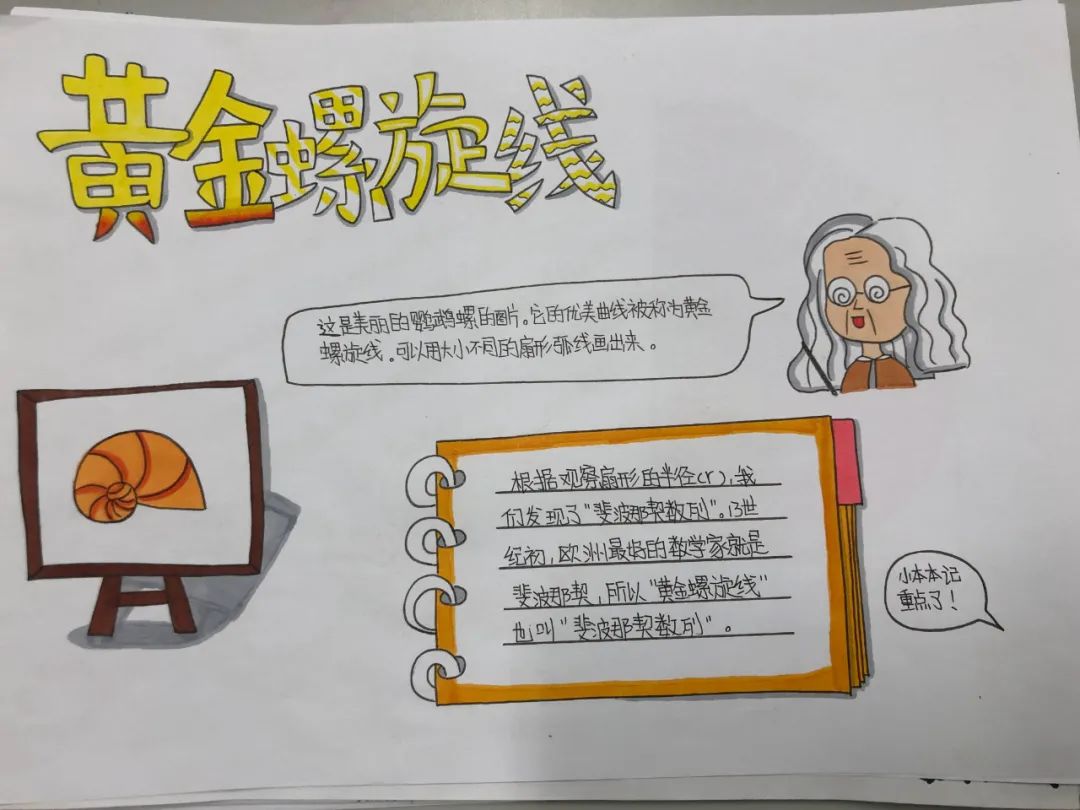 黄金螺旋线
这是美丽的鹦鹉螺的图片。它的优美曲线被称为黄金
螺旋线。可以用大小不同的扇形弧线画出来。
根据观察扇形的半径(r),我
们发现了“斐波那契数列”。13世
纪初,欧洲最好的数学家就是
斐波那契,所以“黄金螺旋线”
也叫“斐波那契数列”。
小本本记
重点了!